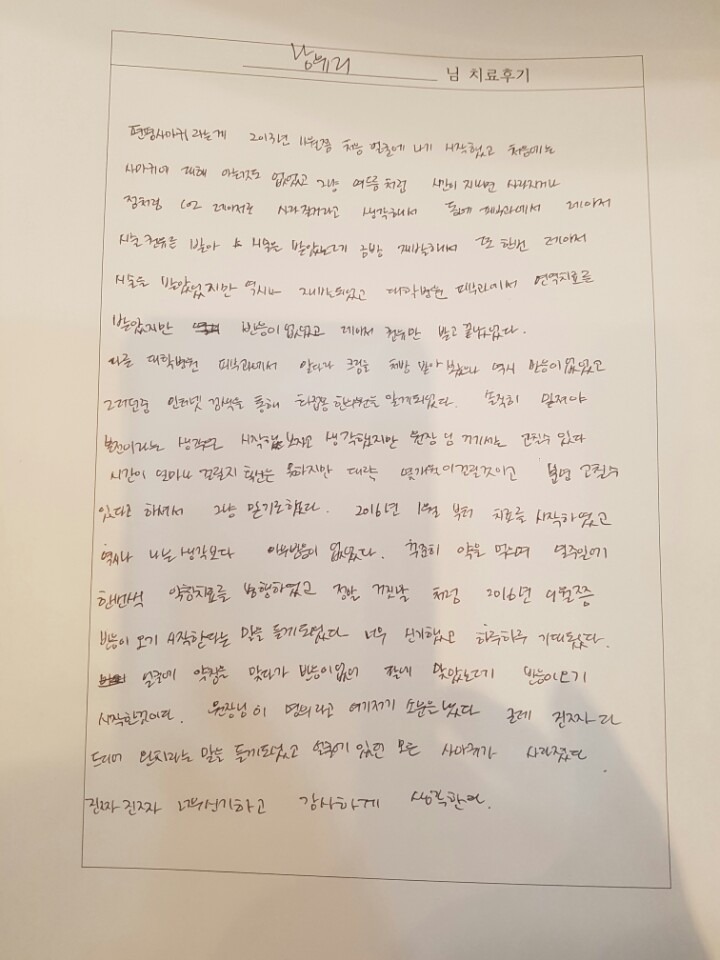 님 치료후기
편평사마귀 라는게 2013년 11월쯤 처음 얼굴에 나기 시작했고 처음에는
사마귀에 대해 아는것도 없었고 그냥 여드름처럼 시간이 지나면 사라지거나
점처럼 CO2 레이저로 사라질거라고 생각해서 동네 피부과에서 레이저
시술 권유를 받아 시술을 받았는데 금방 재발해서 또 한번 레이저
시술을 받았었지만 역시나 재발되었고 대학병원 피부과에서 면역치료를
받았지만 반응이 없었고 레이저 권유만 받고 끝났었다.
다른 대학병원 피부과에서 알다라 크림을 처방 받아 봤으나 역시 반응이 없었고
그러던중 인터넷 검색을 통해 한의원을 알게되었다. 솔직히 밑져야
본전이라는 생각으로 시작해 보자고 생각했지만 원장님 께서는 고칠수 있다
시간이 얼마나 걸릴지 확신은 못하지만 대략 몇개월이 걸릴것이고 분명 고칠수
있다고 하셔서 그냥 믿기로 했다. 2016년 1월 부터 치료를 시작하였고
역시나 나는 생각보다 아무반응이 없었다. 꾸준히 약을 먹으며 일주일에
한번씩 약침치료를 병행하였고 정말 거짓말 처럼 2016년 9월쯤
반응이 오기 시작한다는 말을 듣게되었다 너무 신기했고 하루하루 기대됐었다.
얼굴에 약침을 맞다가 반응이없어 팔에 맞았는데 반응이오기
시작한것이다. 원장님이 명의라고 여기저기 소문을 냈었다 근데 진짜다
드디어 완치라는 말을 듣게되었고 얼굴에 있던 모든 사마귀가 사라졌다.
진짜 진짜 너무신기하고 감사하게 생각한다.